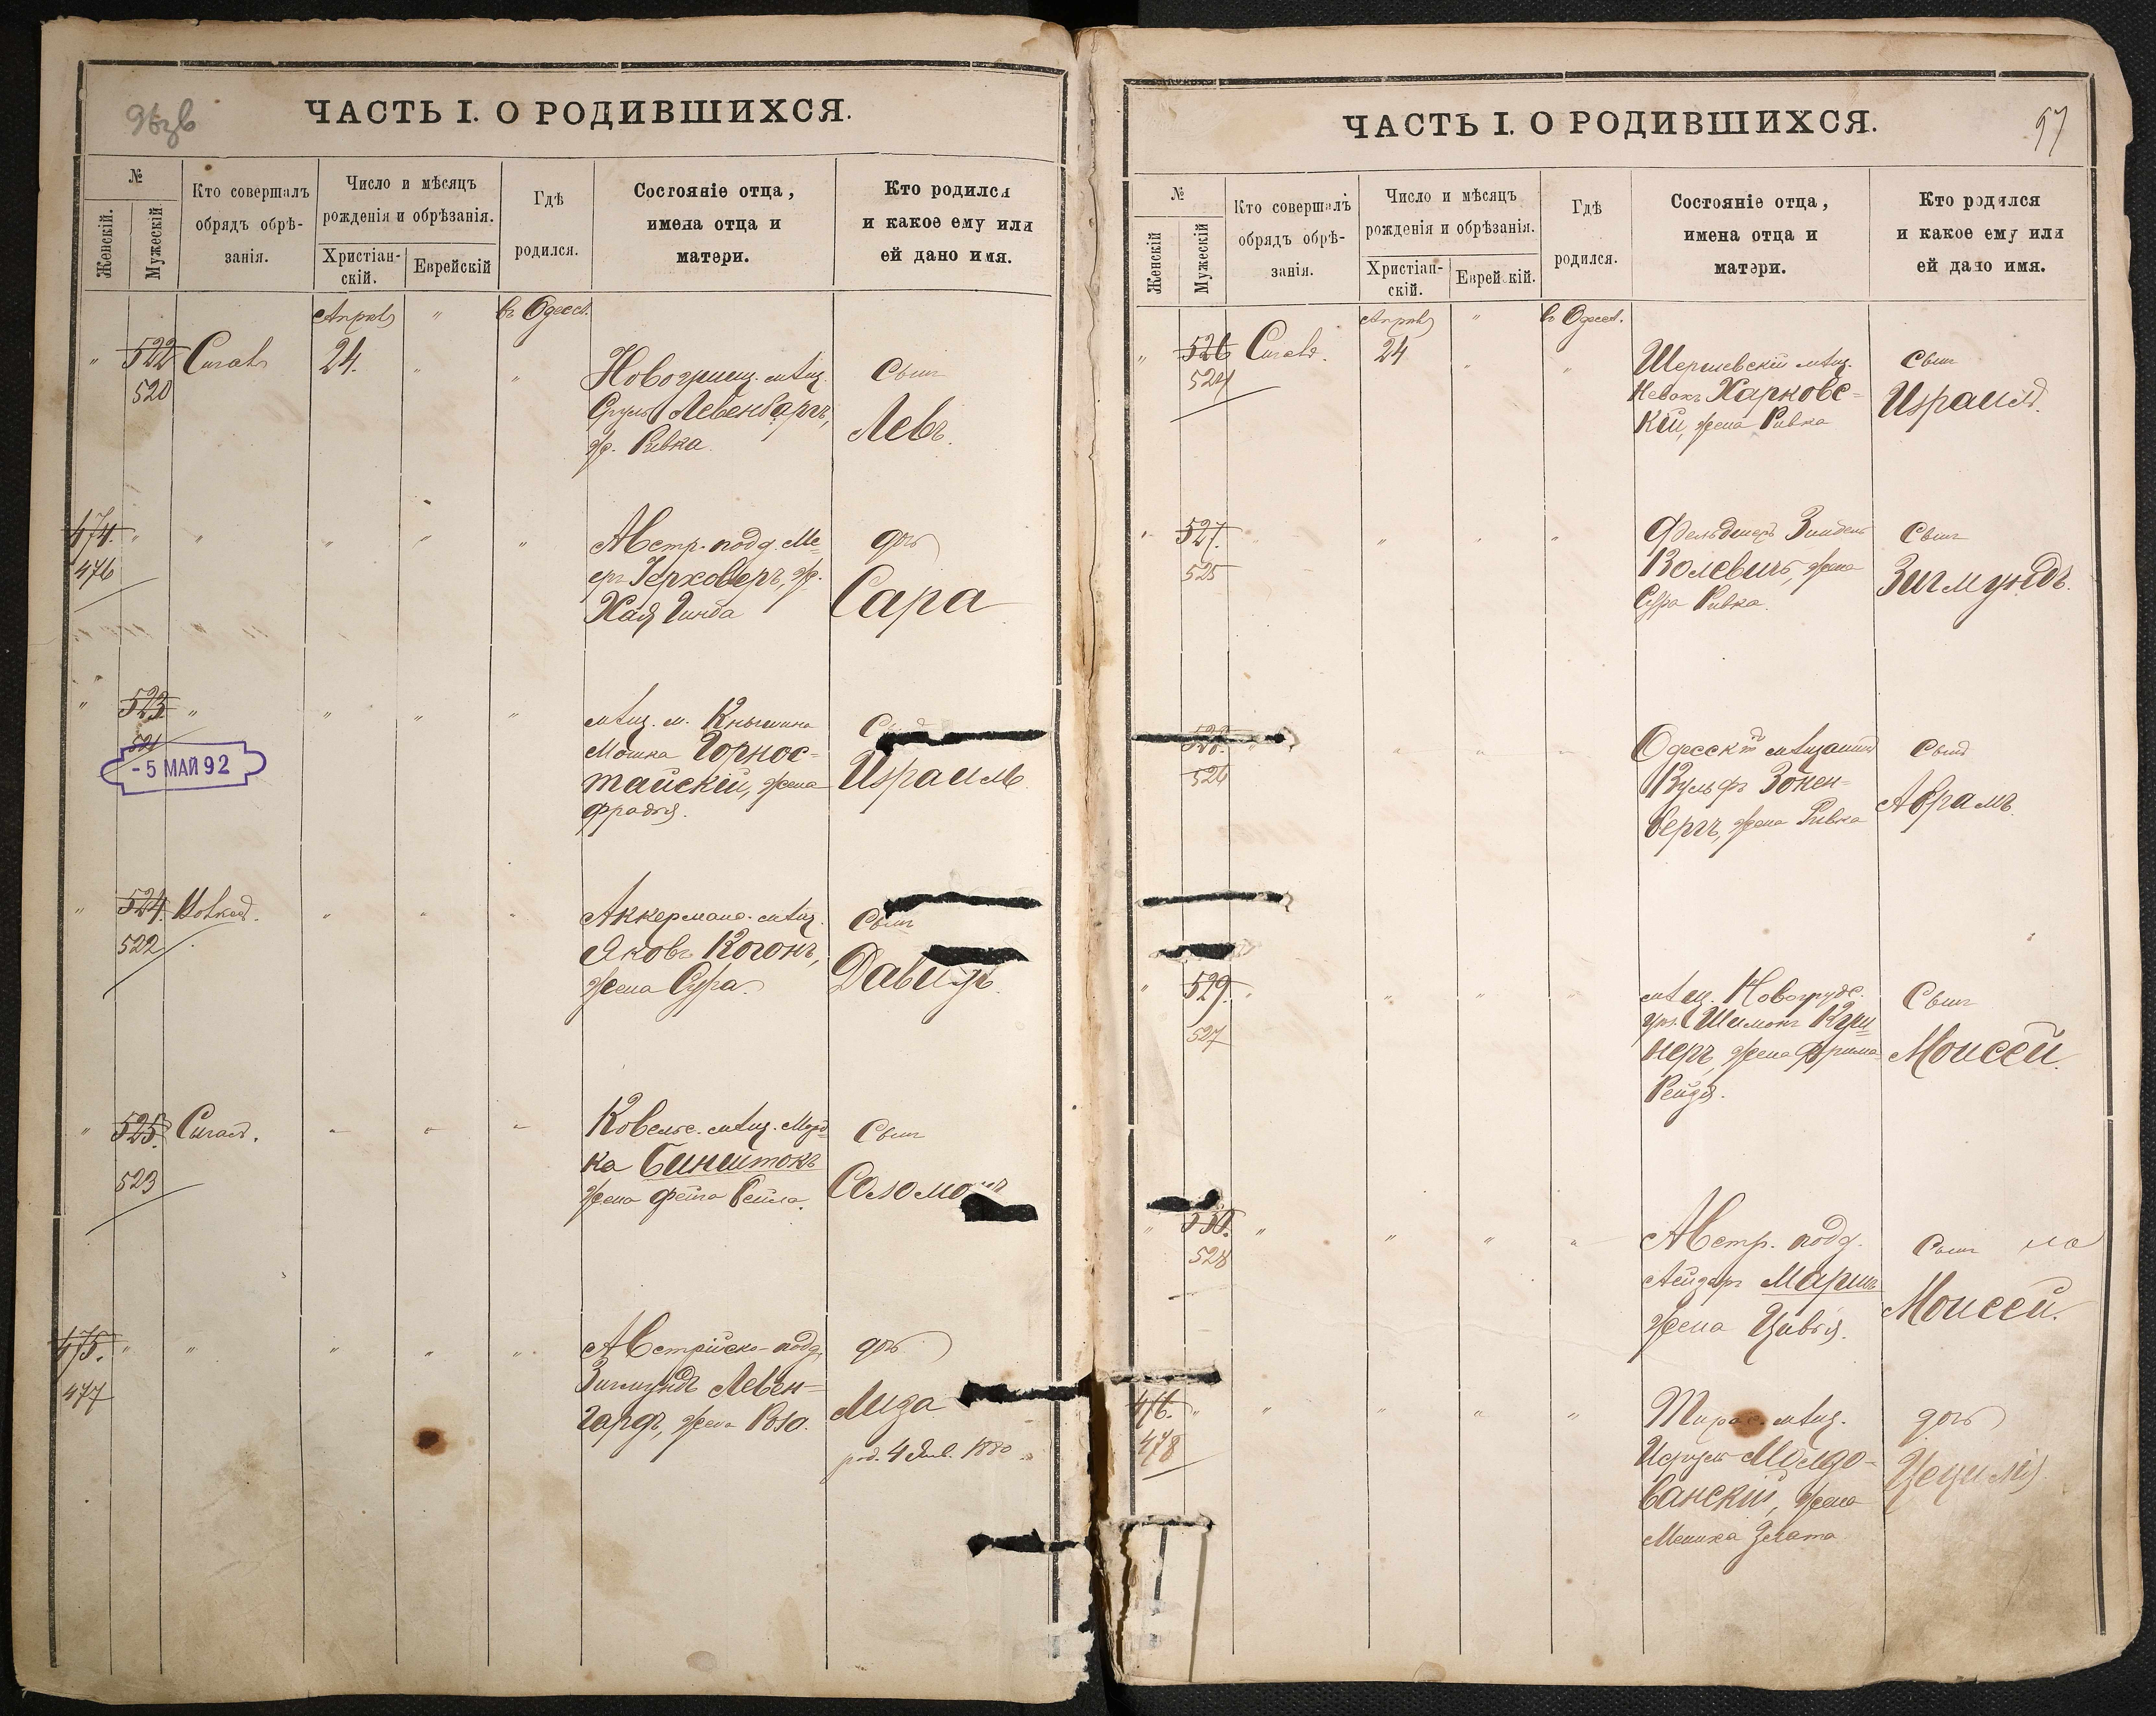 ЧАСТЬ I. О РОДИВШИХСЯ.
№
Женскій.
Мужескій
Кто совершалъ
обрядъ обрѣ-
занія.
Число и мѣсяцъ
рожденія и обрѣзанія.
Христіан-
скій.
Еврейскій
Гдѣ
родился.
Состояніе отца,
имена отца и
матери.
Кто родился
и какое ему или
ей дано имя.
Апрѣль " въ Одессѣ.
" 522 Сигалъ 24. " "
520
Новогриц. мѣщ.
Сруль Левенбаргъ,
ж. Ривка
Сынъ
Левъ.
474. " " " " "
476
Австр. подд. Ме-
еръ Герховеръ, ж.
Хая Гинда
дочь
Сара
" 523 " " " "
521
- 5 МАЙ 92
мѣщ. м. Кнышина
Мошка Горнос-
тайскій, жена
Фрадля.
Израиль
" 524.
522
Аккерманс. мѣщ.
Яковъ Когонъ,
жена Сура.
Сынъ
Давидъ.
" 525. Сигалъ.
523
Ковельс. мѣщ. Морд-
ка Бинштокъ
жена Фейга Бейла.
Сынъ
Соломонъ
475. " " " " "
477
Австрійско-подд.
Зигмундъ Левен-
гардъ, жена Роза.
дочь
Лиза
род. 4 Янв. 1880
ЧАСТЬ I. О РОДИВШИХСЯ.
97
№
Женскій
Мужескій
Кто совершалъ
обрядъ обрѣ-
занія.
Число и мѣсяцъ
рожденія и обрѣзанія.
Христіан-
скій.
Еврей кій.
Гдѣ
родился.
Состояніе отца,
имена отца и
матери.
Кто родился
и какое ему или
ей дано имя.
Апрѣль " въ Одессѣ.
" 526 Сигалъ. 24 " "
524
Шершевскій мѣщ.
Харковс-
кій, жена Ривка
Сынъ
Израиль.
" 527. " " "
525
Фельдшеръ Зиндель
Волевичъ, жена
Сура Ривка.
Сынъ
Зигмундъ.
528.
526
Одесскій мѣщанинъ
Вульфъ Зонен-
бергъ, жена Ривка
Сынъ
Абрамъ.
" 529. " " " "
527
мѣщ. Новогрудс.
Шимонъ Куш-
неръ, жена Фрима
Рейзя.
Сынъ
Моисей.
" 530. " " " "
528
Австр. подд.
Лейзеръ
жена Цивья.
Сынъ
Моисей.
476. " " " " "
478
Тирас. мѣщ.
Молдо-
ванскій, жена
Злата
дочь
Цецилія